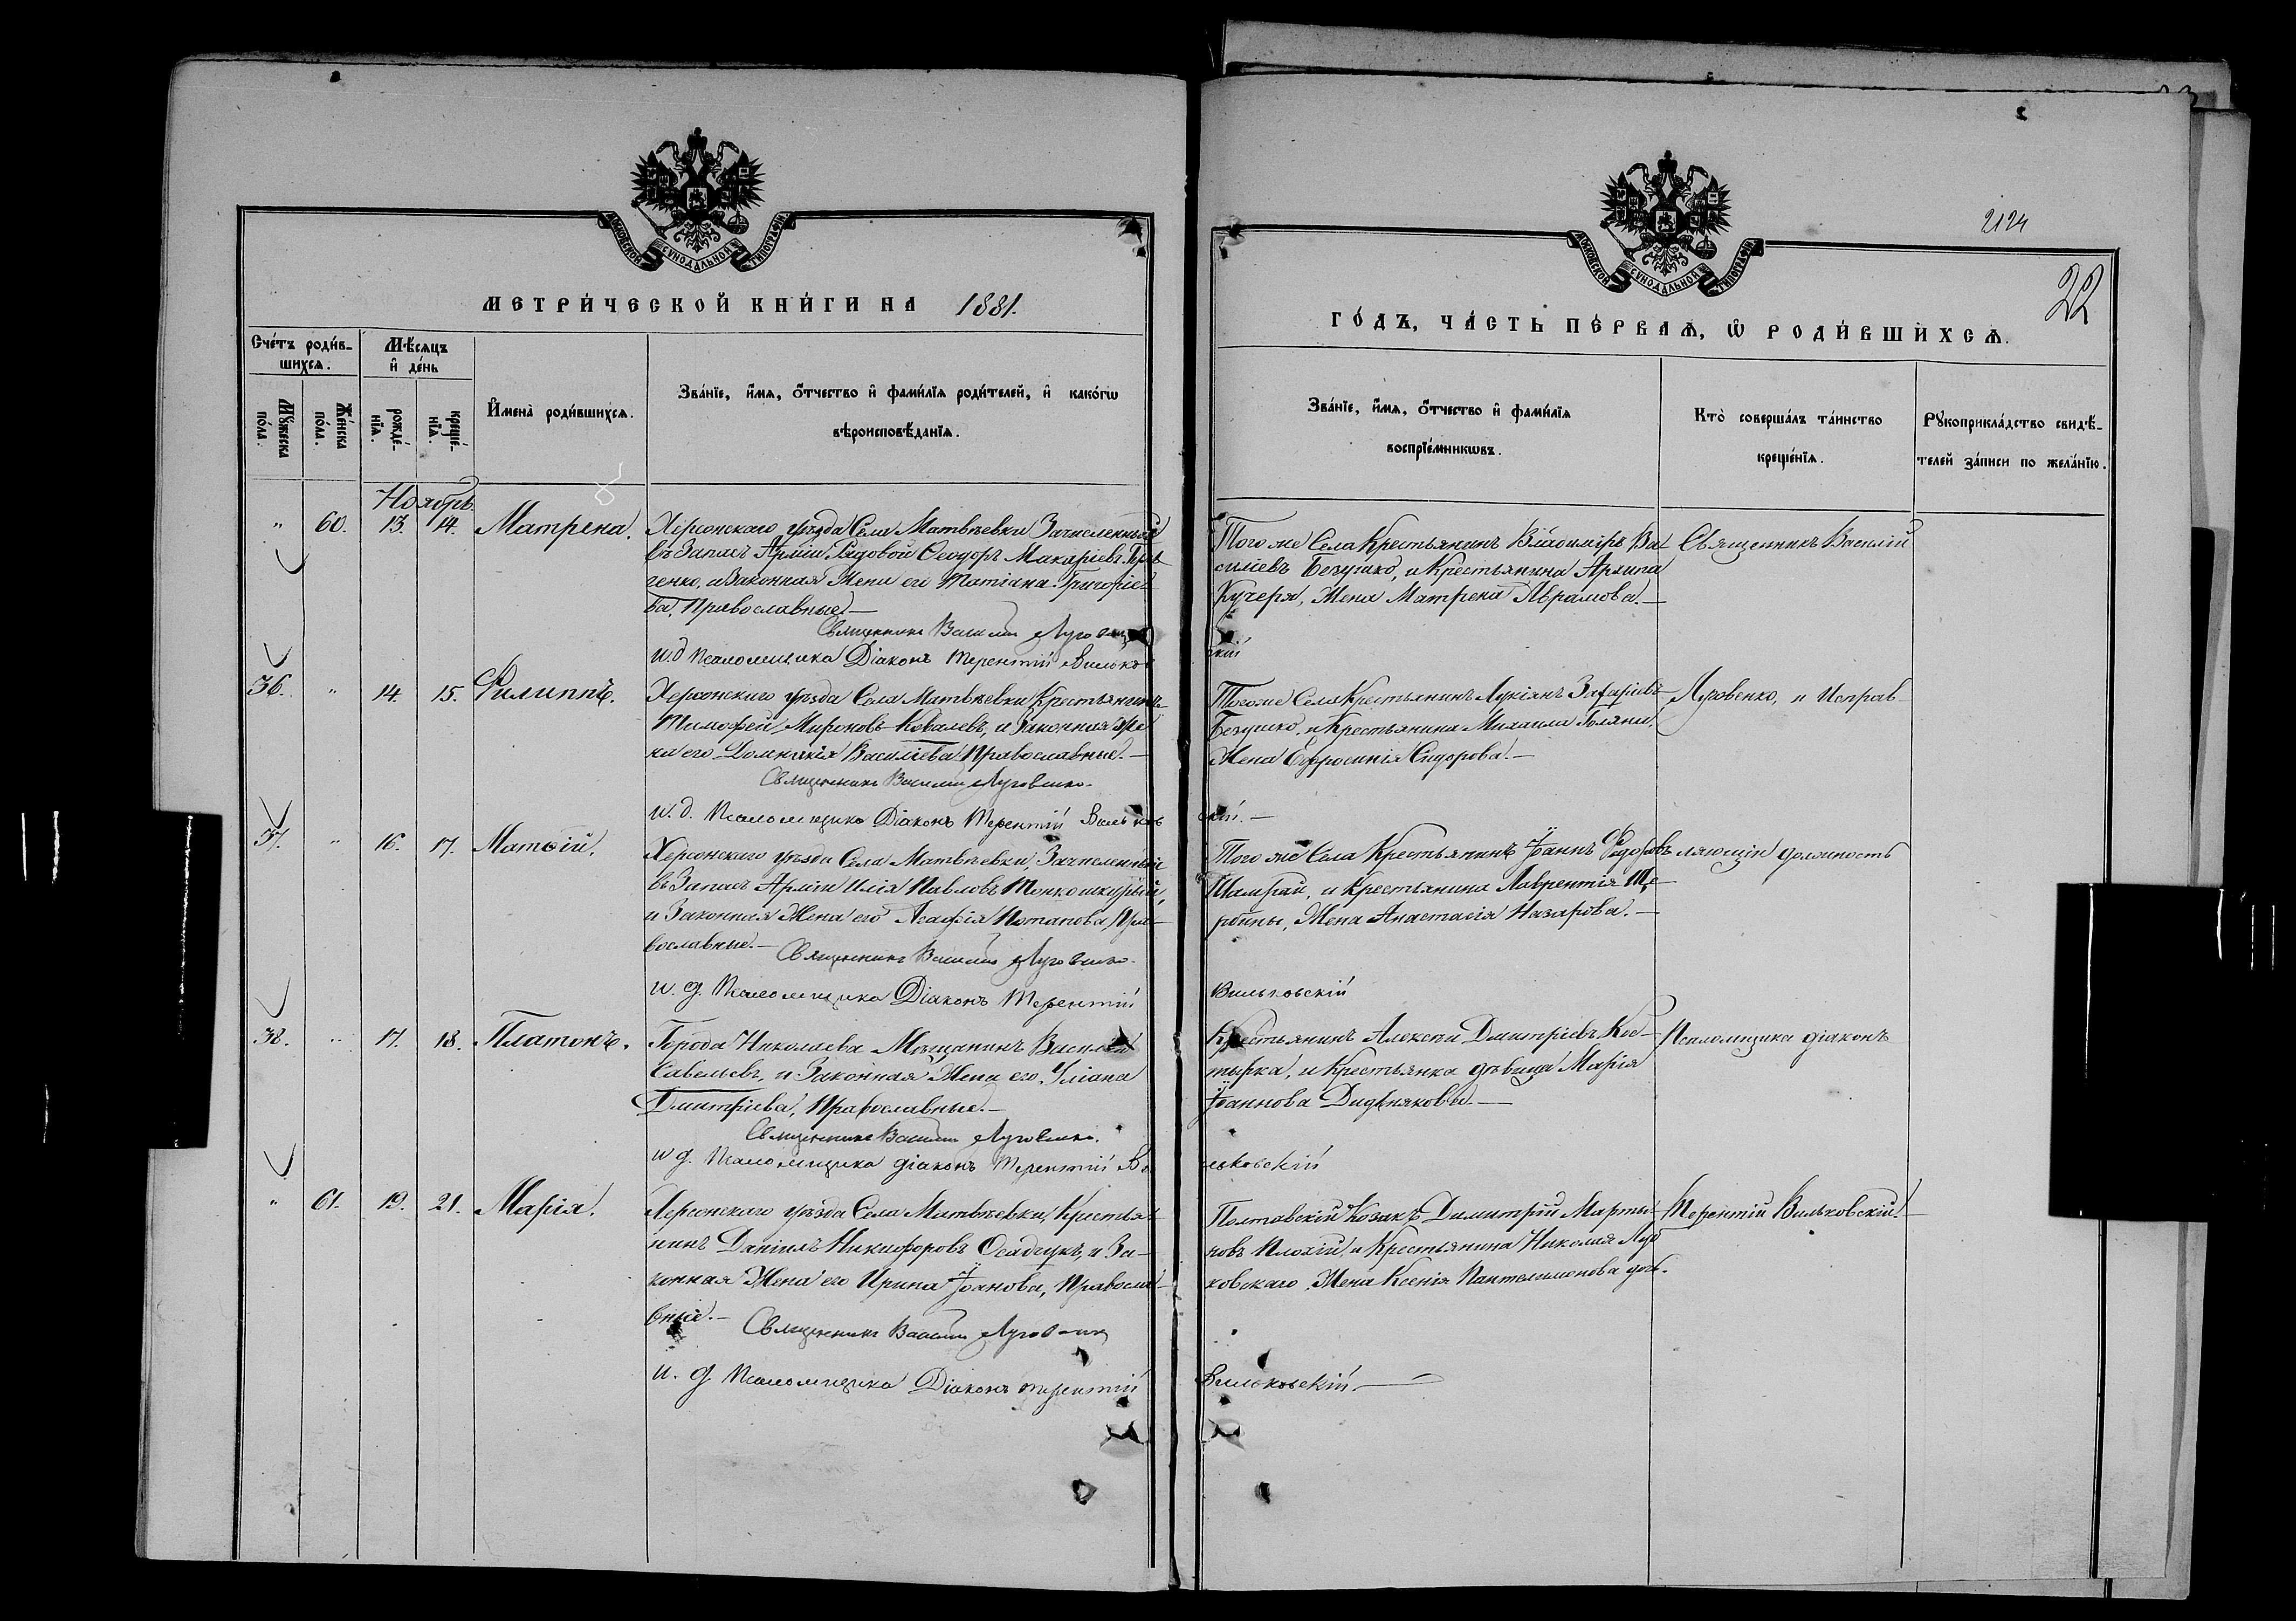 МОСКОВСКОЙ СѴНОДАЛЬНОЙ ТИПОГРАФІИ
МЕТРИ́ЧЕСКОЙ КНИ́ГИ НА 1881.
Сче́тъ роди́в-
шихсѧ.
Мѣ́сѧцъ
и҆ де́нь
Мꙋ́жеска
по́ла.
Же́нска
по́ла.
рожде́-
нїѧ.
креще́-
нїѧ.
И҆мена̀ роди́вшихсѧ.
Зва́нїе, и҆́мѧ, ѻ҆́тчество и҆ фами́лїѧ роди́телей, и҆ како́гѡ
вѣроисповѣ́данїѧ.
Ноябрь
" 60. 13. 14. Матрена.
Херсонскаго уѣзда Села Матвѣевки Зачисленный
въ Запасъ Арміи Рядовой Ѳеодоръ Макаріевъ
ченко, и Законная Жена его Татіана Григоріе-
ва, Православные.—
Священникъ Василій
и.д Псаломщика Діаконъ Терентій Вильков
36. " 14. 15. Филиппъ.
Херсонскаго уѣзда Села Матвѣевки Крестьянинъ
Тимофей Мироновъ Ковалевъ, и Законная Же-
на его Домникія Василіева Православные.—
Священникъ Василій Луговенко.
и.д. Псаломщика Діаконъ Терентій Вильков
37. " 16. 17. Матѳій.
Херсонскаго уѣзда Села Матвѣевки, Зачисленный
въ Запасъ Арміи Илія Павловъ Тонкошкурый,
и Законная Жена его Агафія Потапова, Пра-
вославные.— Священникъ Василій Луговенко.
и. д. Псаломщика Діаконъ Терентій
38. " 17. 18. Платонъ.
Города Николаева Мѣщанинъ Василій
Савельевъ, и Законная Жена его, Уліана
Дмитріева, Православные.—
Священникъ Василій Луговенко.
и д. Псаломщика діаконъ Терентій Ви
" 61. 19. 21. Марія.
Херсонскаго уѣзда Села Матвѣевки, Крестья-
нинъ Даніилъ Никифоровъ Осадчукъ, и За-
конная Жена его Ирина Іоанова, Правосла-
вные.— Священникъ Василій
и. д Псаломщика Діаконъ Терентій
МОСКОВСКОЙ СѴНОДАЛЬНОЙ ТИПОГРАФІИ
2124
22
ГО́ДЪ, ЧА́СТЬ ПЕ́РВАѦ, Ѡ҆ РОДИ́ВШИХСѦ.
Зва́нїе, и҆́мѧ, ѻ҆́тчество и҆ фами́лїѧ
воспрїе́мникѡвъ.
Кто̀ соверша́лъ та́инство
креще́нїѧ.
Рꙋкоприкла́дство свидѣ́-
телей за́писи по жела́нїю.
Того же Села Крестьянинъ Владиміръ Ва-
силіевъ Безушко, и Крестьянина Архипа
Кучеря, Жена Матрена Аврамова.—
скій
Священникъ Василій
Тогоже Села Крестьянинъ Лукіянъ Захаріевъ
Безушко, и Крестьянина Михаила
Жена Ефросинія Сидорова.—
скій.—
Луговенко, и Исправ-
Того же Села Крестьянинъ Іоаннъ Ѳедоровъ
Шамрай, и Крестьянина Лаврентія Ще-
рбины, Жена Анастасія Назарова.—
Вильковскій
ляющій должность
Крестьянинъ Алексѣй Дмитріевъ Ко-
тырка, и Крестьянка дѣвица Марія
Іоаннова
льковскій
Псаломщика діаконъ
Полтавскій Козакъ Димитрій Марты-
новъ Плохій, и Крестьянина Николая
ковскаго, Жена Ксенія Пантелимонова
Вильковскій.—
Терентій Вильковскій.—